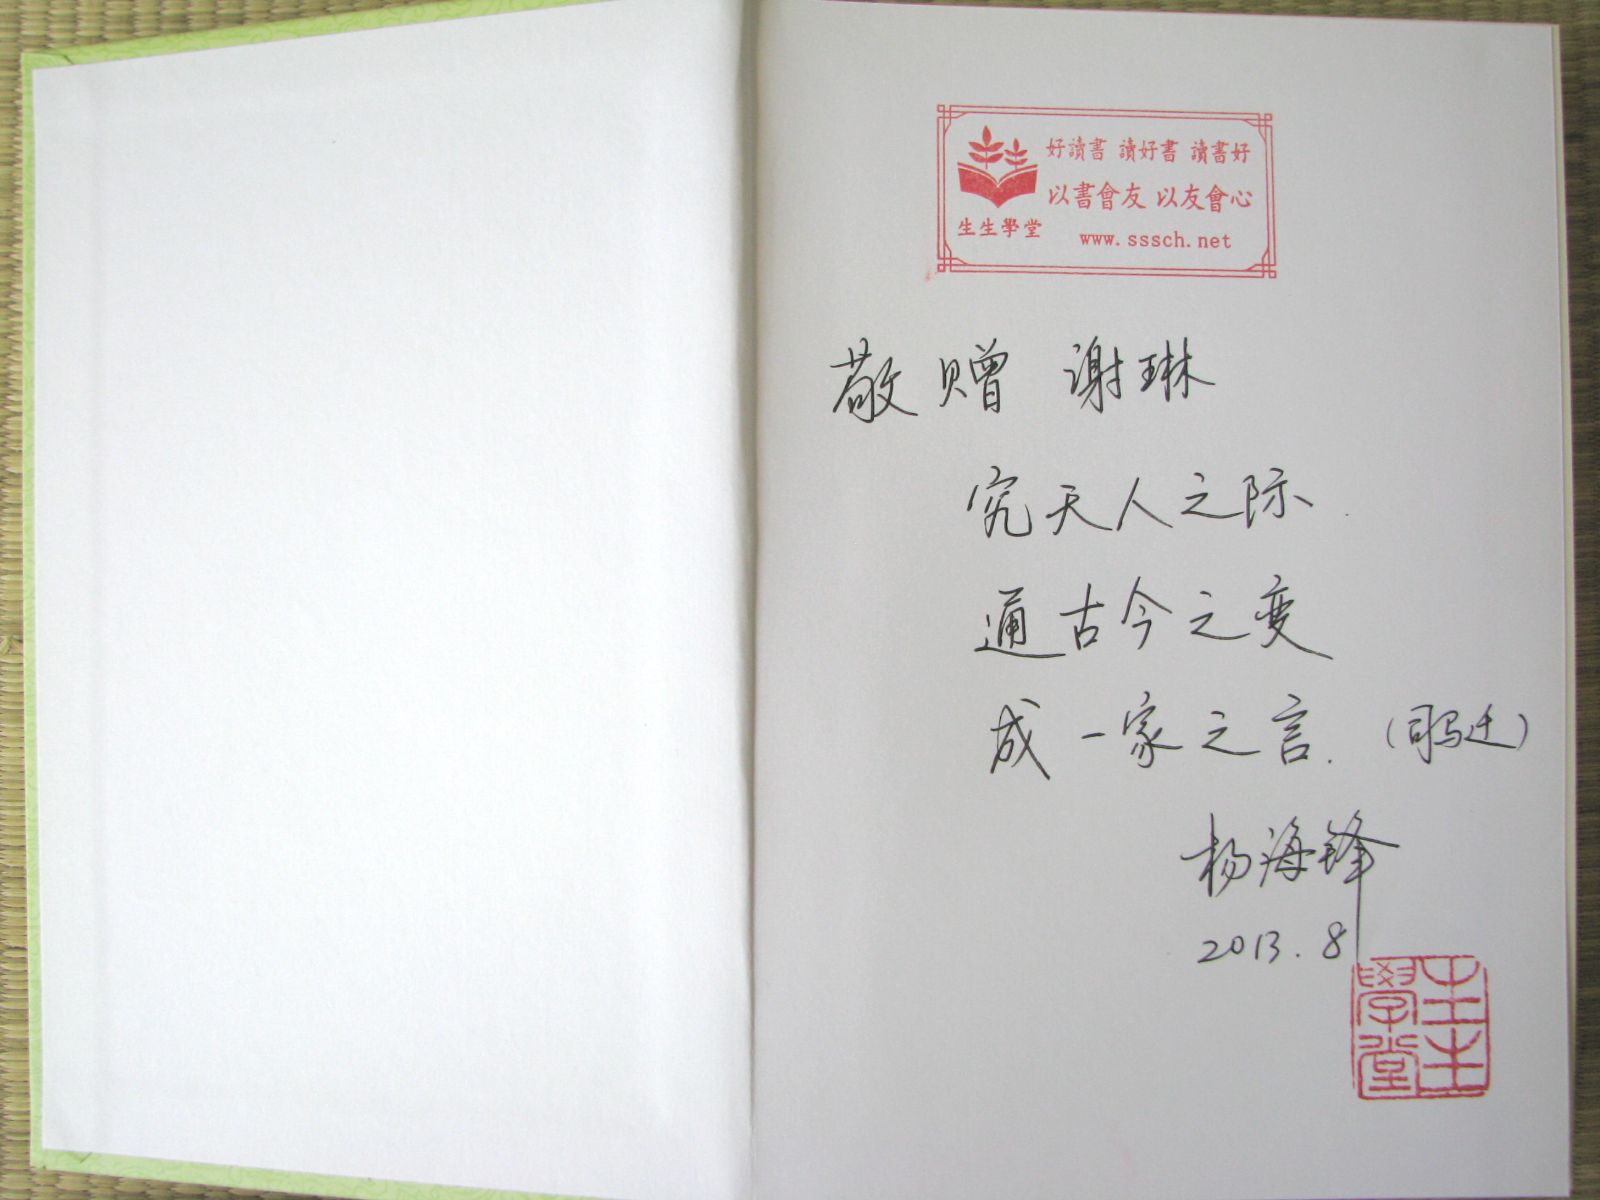 好讀書 讀好書 讀書好
以書會友 以友會心
生生學堂
www.sssch.net
敬赠 谢琳
究天人之际
通古今之变
成一家之言.(司马迁)
杨海锋
2013.8
生生學堂